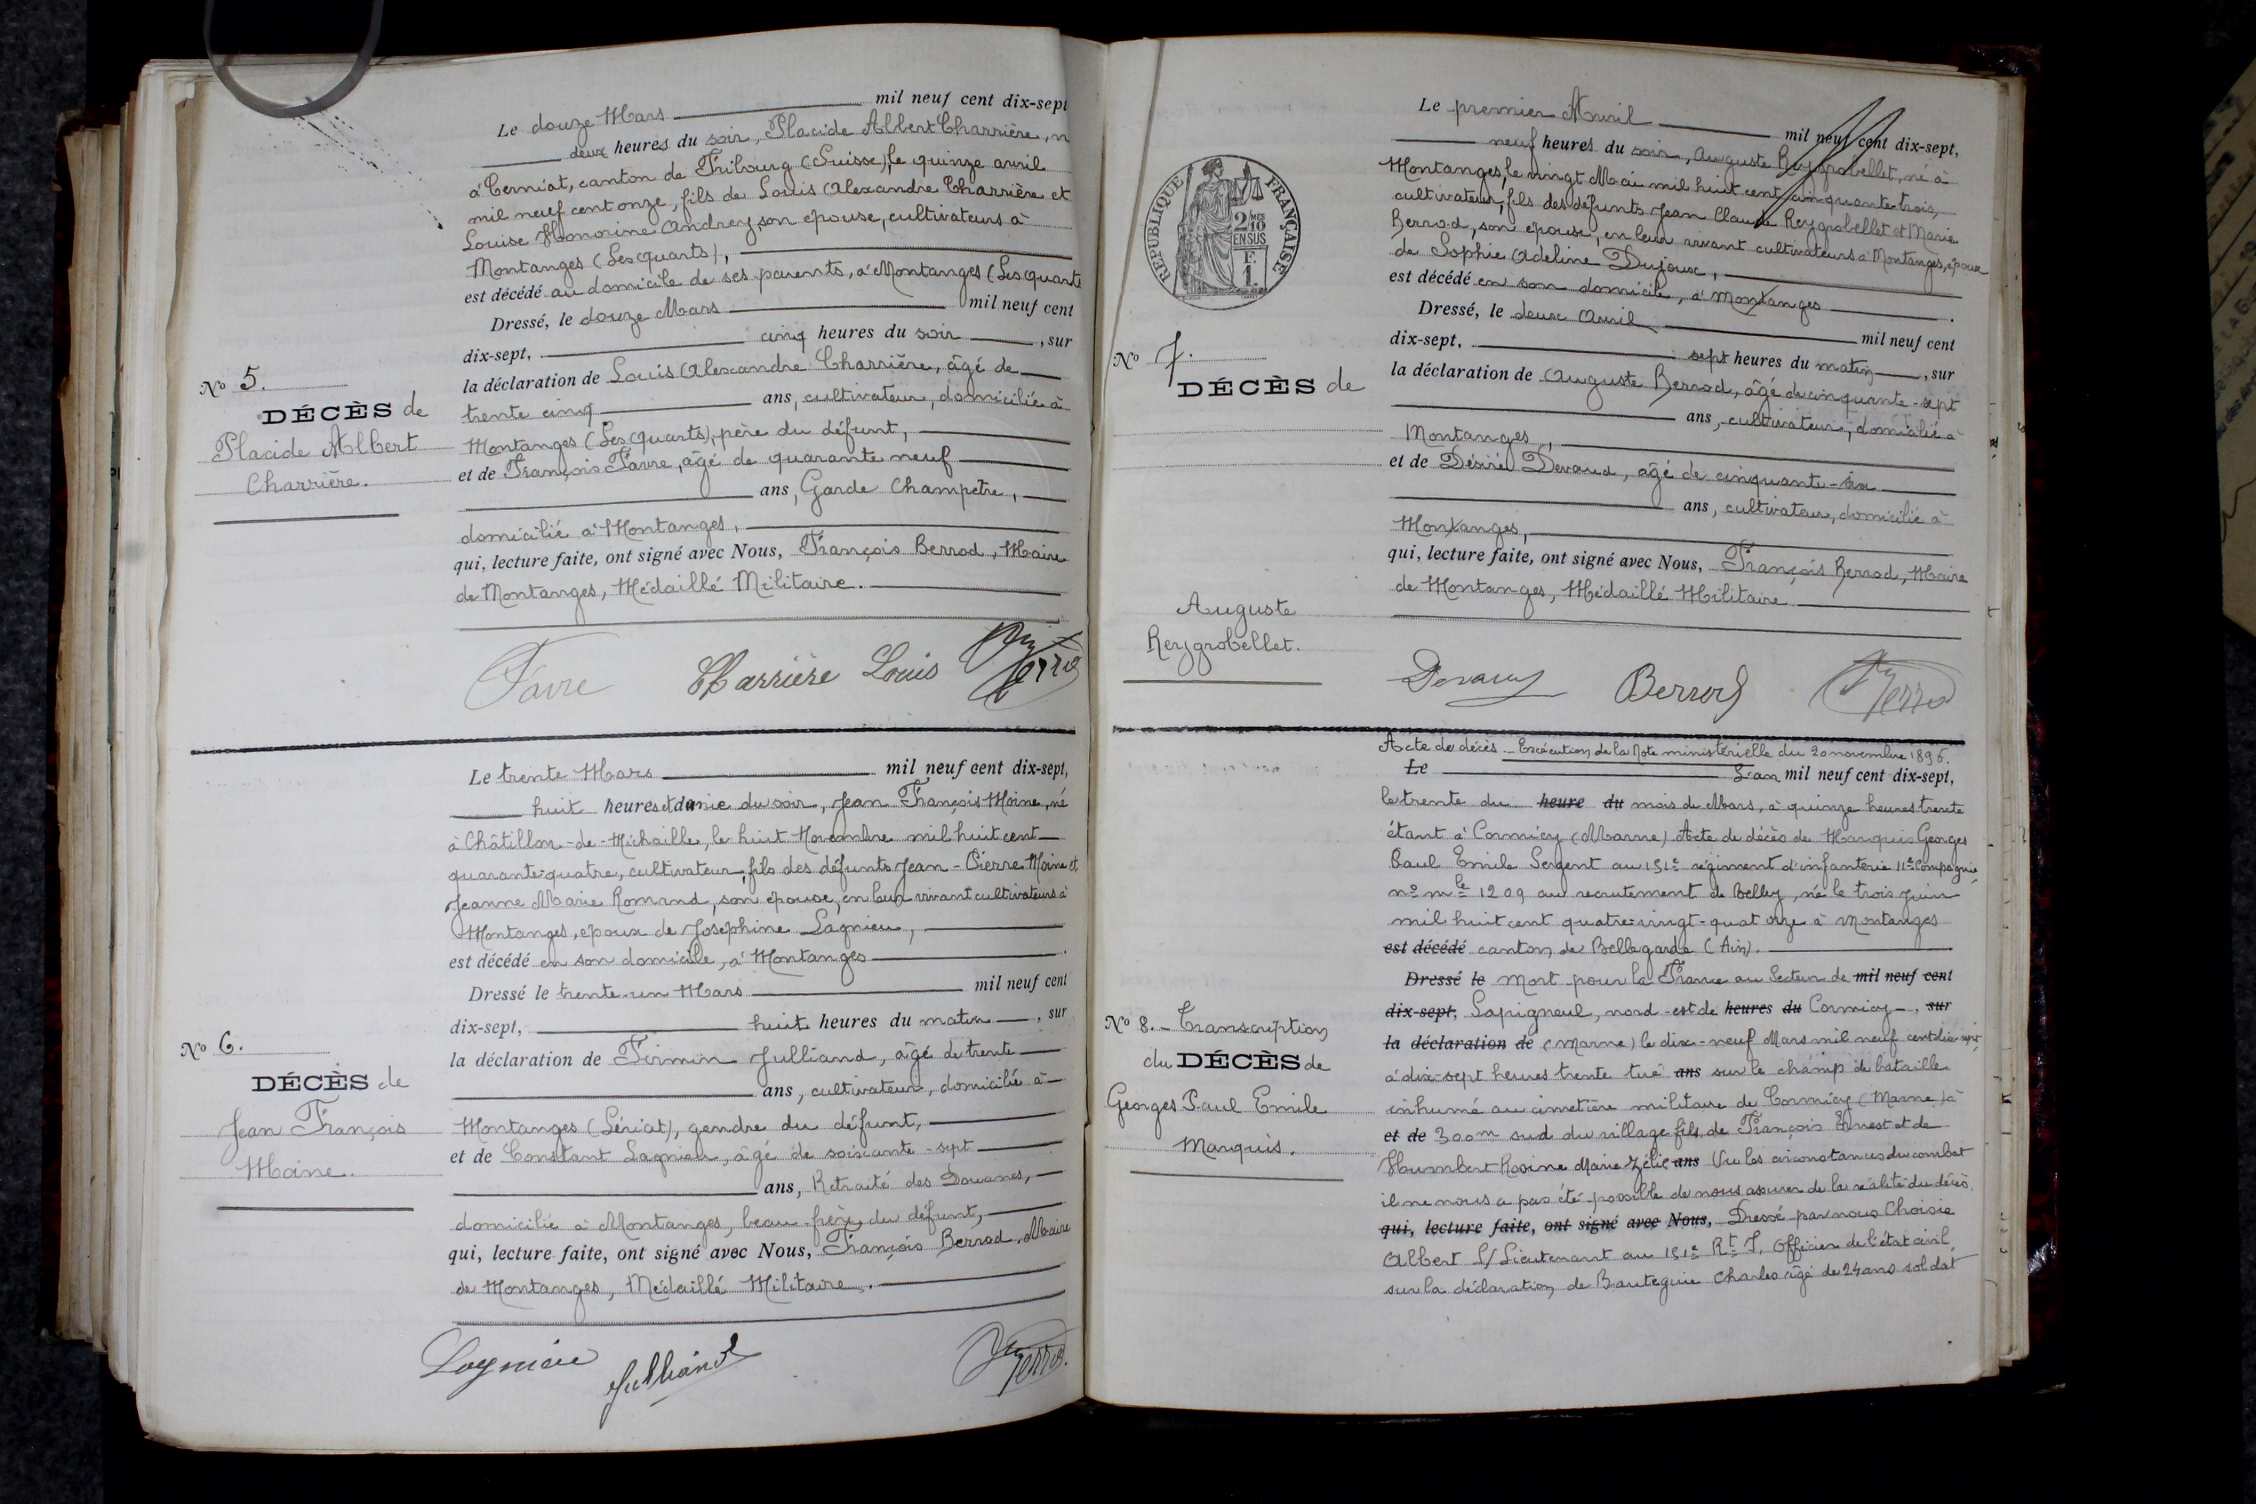 Le douze Mars mil neuf cent dix-sept
deux heures du soir, Placide Albert Charrière, n
à Cerniat, canton de Fribourg (Suisse), le quinze avril
mil neuf cent onze, fils de Louis Alexandre Charrière et
Louise Honorine Andrey son épouse, cultivateurs à
Montanges (Les Quarts),
est décédé au domicile de ses parents, à Montanges (Les Quarts
Dressé, le douze Mars mil neuf cent
dix-sept, cinq heures du soir, sur
la déclaration de Louis Alexandre Charrière, âgé de
trente cinq ans, cultivateur, domicilié à
Montanges (Les Quarts), père du défunt,
et de François Favre, âgé de quarante neuf
ans, Garde Champêtre,
domicilié à Montanges,
qui, lecture faite, ont signé avec Nous, François Berrod, Maire
de Montanges, Médaillé Militaire.
No 5.
DÉCÈS de
Placide Albert
Charrière.
Favre Charrière Louis
Le trente Mars mil neuf cent dix-sept,
huit heures et demie du soir, Jean François Moine, né
à Châtillon-de-Michaille, le huit Novembre mil huit cent
quarante-quatre, cultivateur, fils des défunts Jean-Pierre Moine et
Jeanne Marie Romand, son épouse, en leur vivant cultivateurs à
Montanges, époux de Joséphine Lagnieu,
est décédé en son domicile, à Montanges.
Dressé le trente-un Mars mil neuf cent
dix-sept, huit heures du matin, sur
la déclaration de Firmin Julliand, âgé de trente
ans, cultivateur, domicilié à
Montanges (Lériat), gendre du défunt,
et de Constant Lagnieu, âgé de soixante-sept
ans, Retraité des Douanes,
domicilié à Montanges, beau-frère du défunt,
qui, lecture faite, ont signé avec Nous, François Berrod, Maire
de Montanges, Médaillé Militaire.
No 6.
DÉCÈS de
Jean François
Moine.
Lagnieu Julliand
RÉPUBLIQUE FRANÇAISE
2/10 MES
EN SUS
F.
1.
Le premier Avril mil neuf cent dix-sept,
neuf heures du soir, Auguste Reygrobellet, né à
Montanges, le vingt Mai mil huit cent cinquante trois,
cultivateur, fils des défunts Jean Claude Reygrobellet et Marie
Berrod, son épouse, en leur vivant cultivateurs à Montanges, époux
de Sophie Adeline Dujoux,
est décédé en son domicile, à Montanges.
Dressé, le deux Avril mil neuf cent
dix-sept, sept heures du matin, sur
la déclaration de Auguste Berrod, âgé de cinquante-sept
ans, cultivateur, domicilié à
Montanges,
et de Désiré Devaud, âgé de cinquante-six
ans, cultivateur, domicilié à
Montanges,
qui, lecture faite, ont signé avec Nous, François Berrod, Maire
de Montanges, Médaillé Militaire
No 7.
DÉCÈS de
Auguste
Reygrobellet.
Devaud Berrod
Acte de décès - Exécution de la Note ministérielle du 20 novembre 1896.
Le L'an mil neuf cent dix-sept,
le trente du heure du mois de Mars, à quinze heures trente
étant à Cormicy (Marne) Acte de décès de Marquis Georges
Paul Emile Sergent au 151e régiment d'infanterie 11e Compagnie,
no mle 1209 au recrutement de Belley, né le trois Juin
mil huit cent quatre-vingt-quatorze à Montanges
est décédé canton de Bellegarde (Ain).
Dressé le Mort pour la France au Secteur de mil neuf cent
dix-sept, Sapigneul, nord-est de heures du Cormicy, sur
la déclaration de (Marne) le dix-neuf Mars mil neuf cent dix-sept,
à dix-sept heures trente tué ans sur le champ de bataille
inhumé au cimetière militaire de Cormicy (Marne) à
et de 300m sud du village fils de François Ernest et de
Humbert Rosine Marie Zélie ans Vu les circonstances du combat
il ne nous a pas été possible de nous assurer de la réalité du décès.
qui, lecture faite, ont signé avec Nous, Dressé par nous Choisie
Albert S/Lieutenant au 151e Rt I. Officier de l'état civil
sur la déclaration de Bauteguie Charles âgé de 24 ans soldat
No 8. - Transcription
du DÉCÈS de
Georges Paul Emile
Marquis.